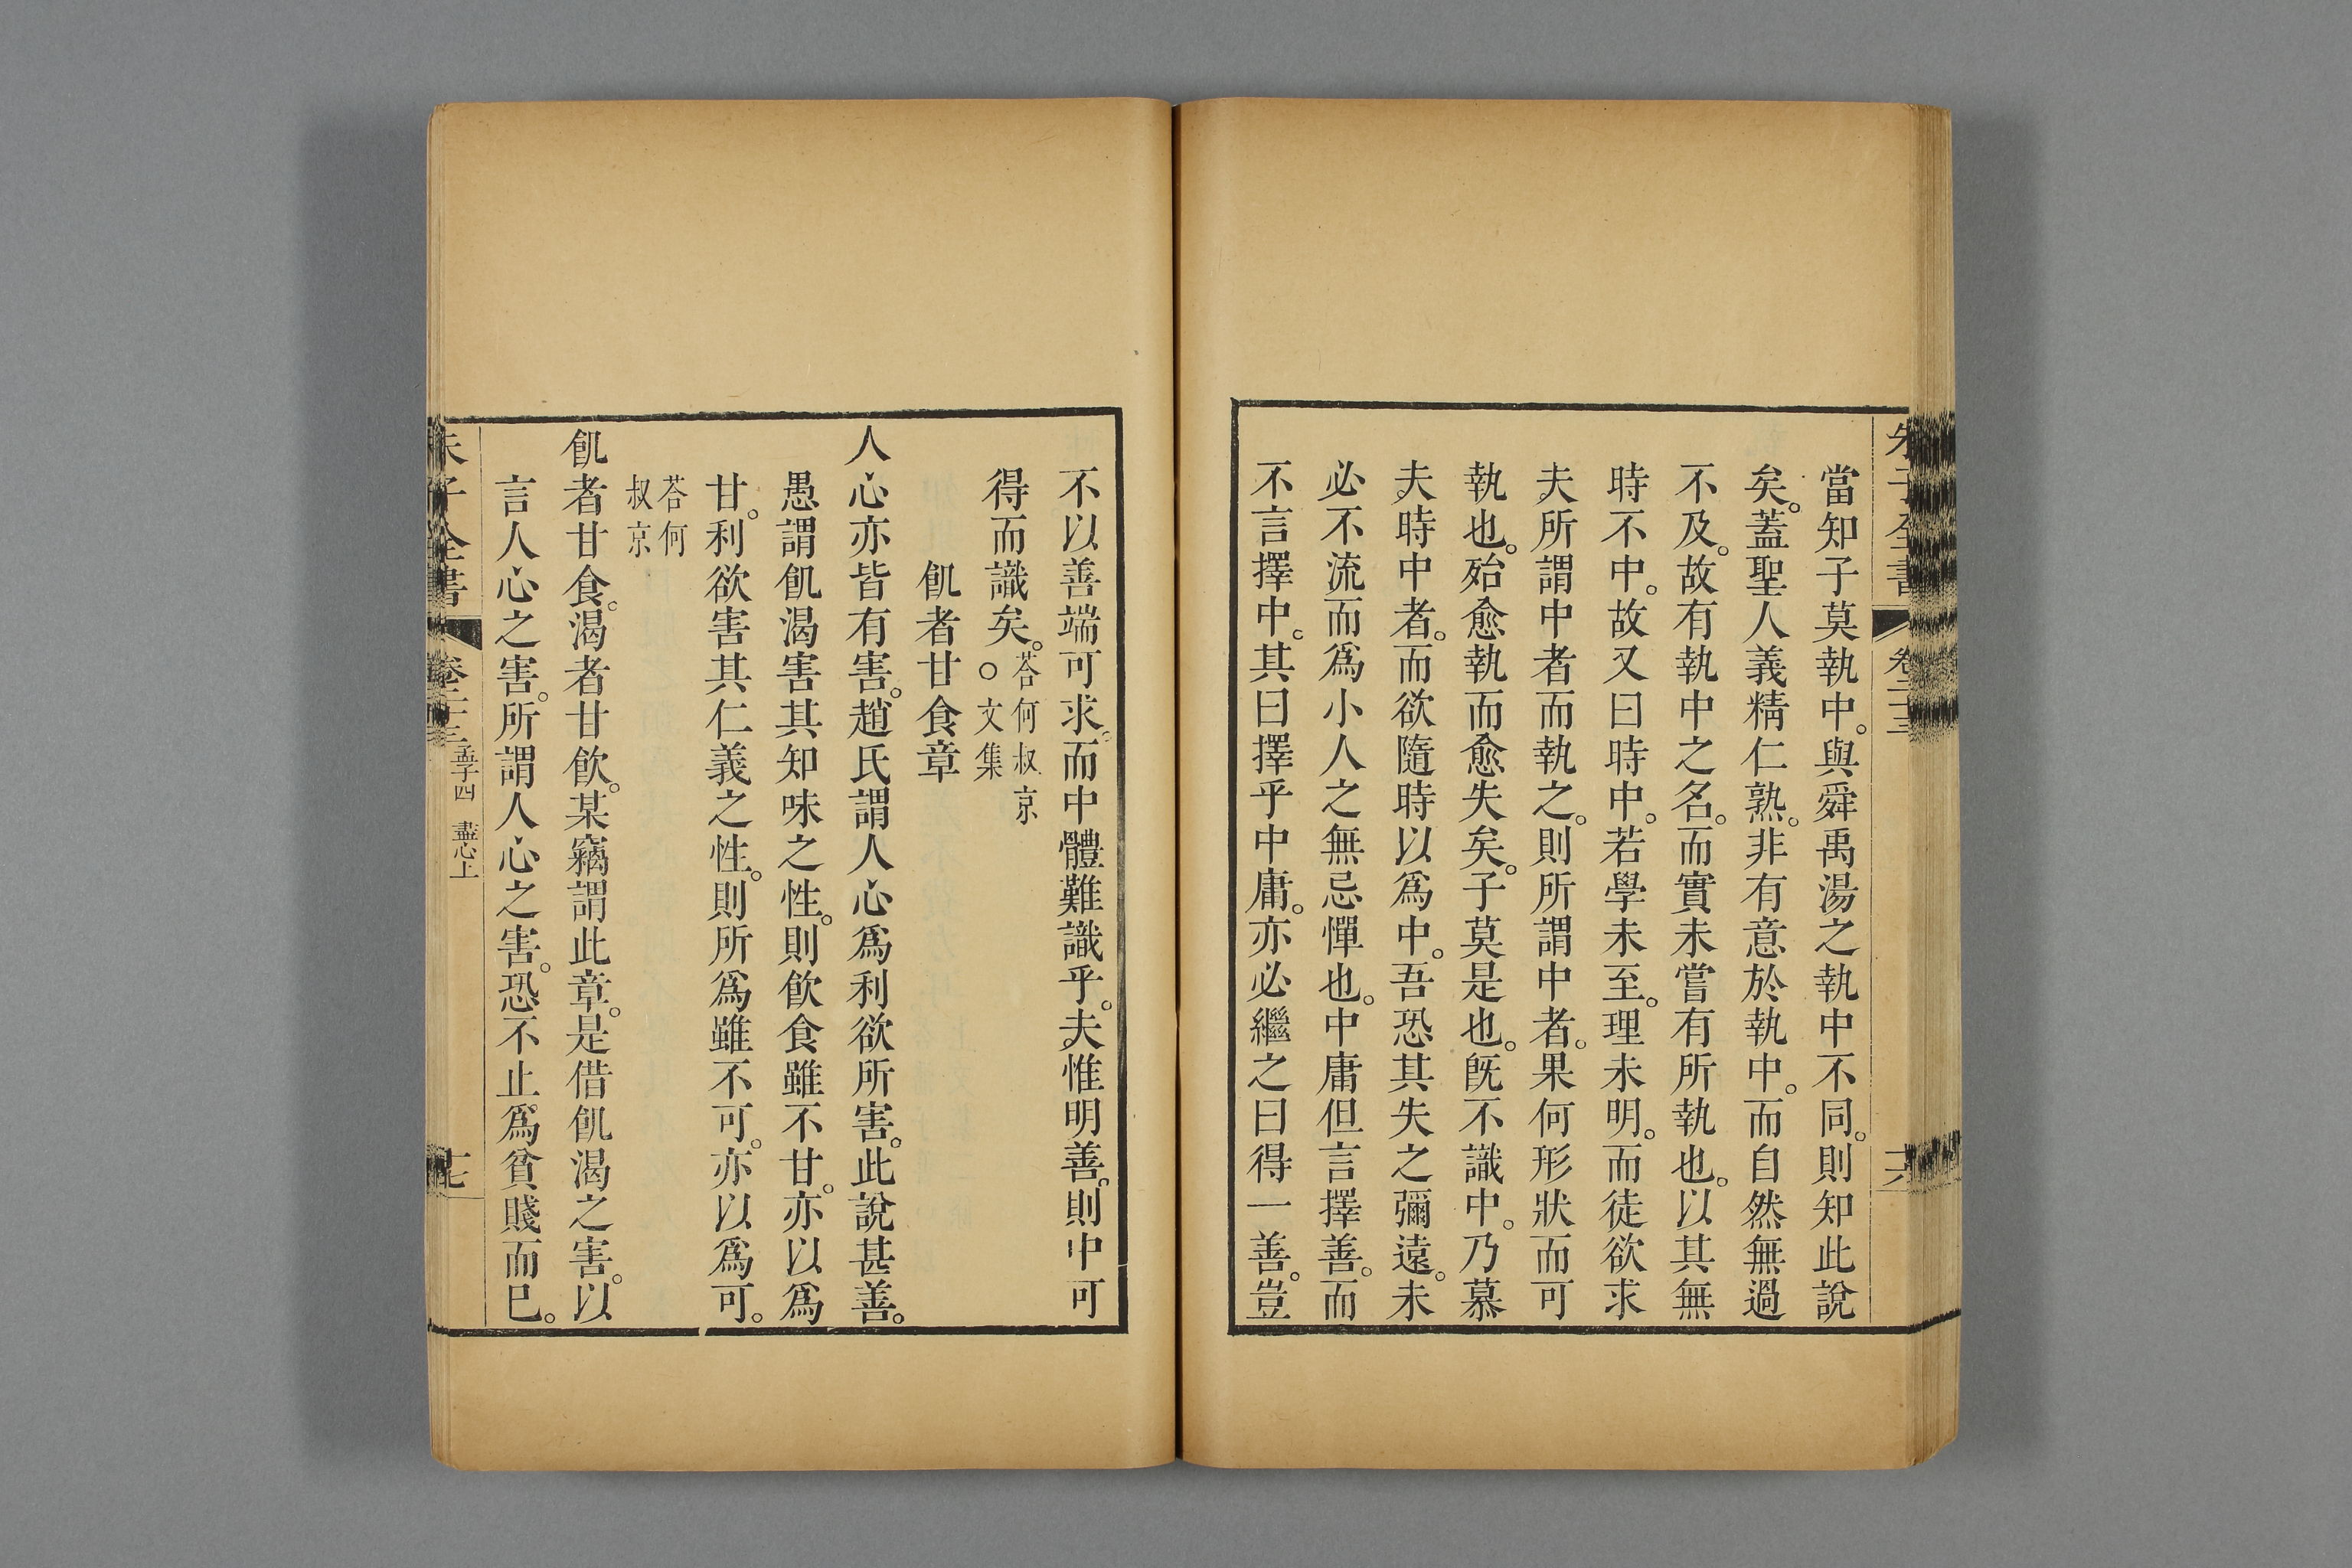 朱子全書 卷二十三 十六
當知子莫執中。與舜禹湯之執中不同。則知此說
矣。蓋聖人義精仁熟。非有意於執中。而自然無過
不及。故有執中之名。而實未嘗有所執也。以其無
時不中。故又曰時中。若學未至。理未明。而徒欲求
夫所謂中者而執之。則所謂中者。果何形狀而可
執也。殆愈執而愈失矣。子莫是也。旣不識中。乃慕
夫時中者。而欲隨時以爲中。吾恐其失之彌遠。未
必不流而爲小人之無忌憚也。中庸但言擇善。而
不言擇中。其曰擇乎中庸。亦必繼之曰得一善。豈
不以善端可求。而中體難識乎。夫惟明善。則中可
得而識矣。答何叔京○文集
飢者甘食章
人心亦皆有害。趙氏謂人心爲利欲所害。此說甚善。
愚謂飢渴害其知味之性。則飮食雖不甘。亦以爲
甘。利欲害其仁義之性。則所爲雖不可。亦以爲可。
答何叔京
飢者甘食。渴者甘飮。某竊謂此章。是借飢渴之害。以
言人心之害。所謂人心之害。恐不止爲貧賤而已。
朱子全書 卷二十三 孟子四 盡心上 十七